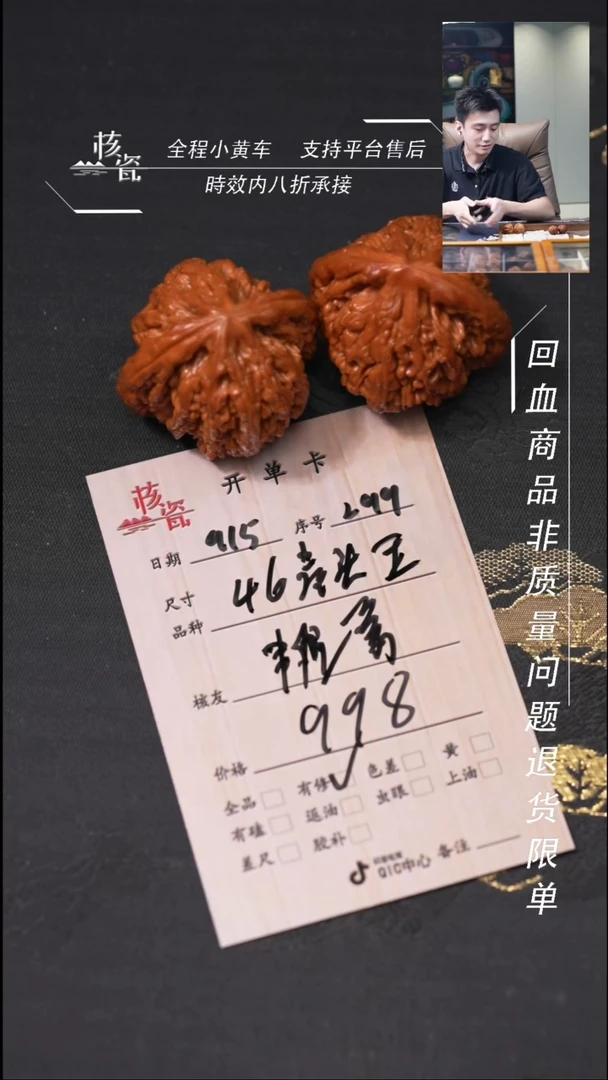 核瓷
全程小黄车 支持平台售后
時效内八折承接
回血商品非质量问题退货限单
核瓷
开单卡
日期 915 序号 299
尺寸 46
品种
核友
价格 998
全品 有修 色差 黄
有磕 返油 虫眼 上油
差尺 胶补
QIC中心 备注